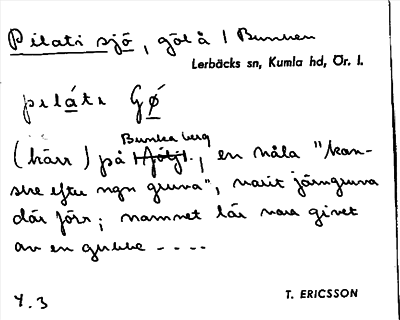 Pilati sjö, göl å 1 Bunnen
Lerbäcks sn, Kumla hd, Ör. l.
piláti Gǿ
Bunnea berg
(kärr) på, en håla "kan-
ske efter ngn gruva", varit järngruva
där förr; namnet lär vara givet
av en gubbe ----
Y. 3
T. ERICSSON